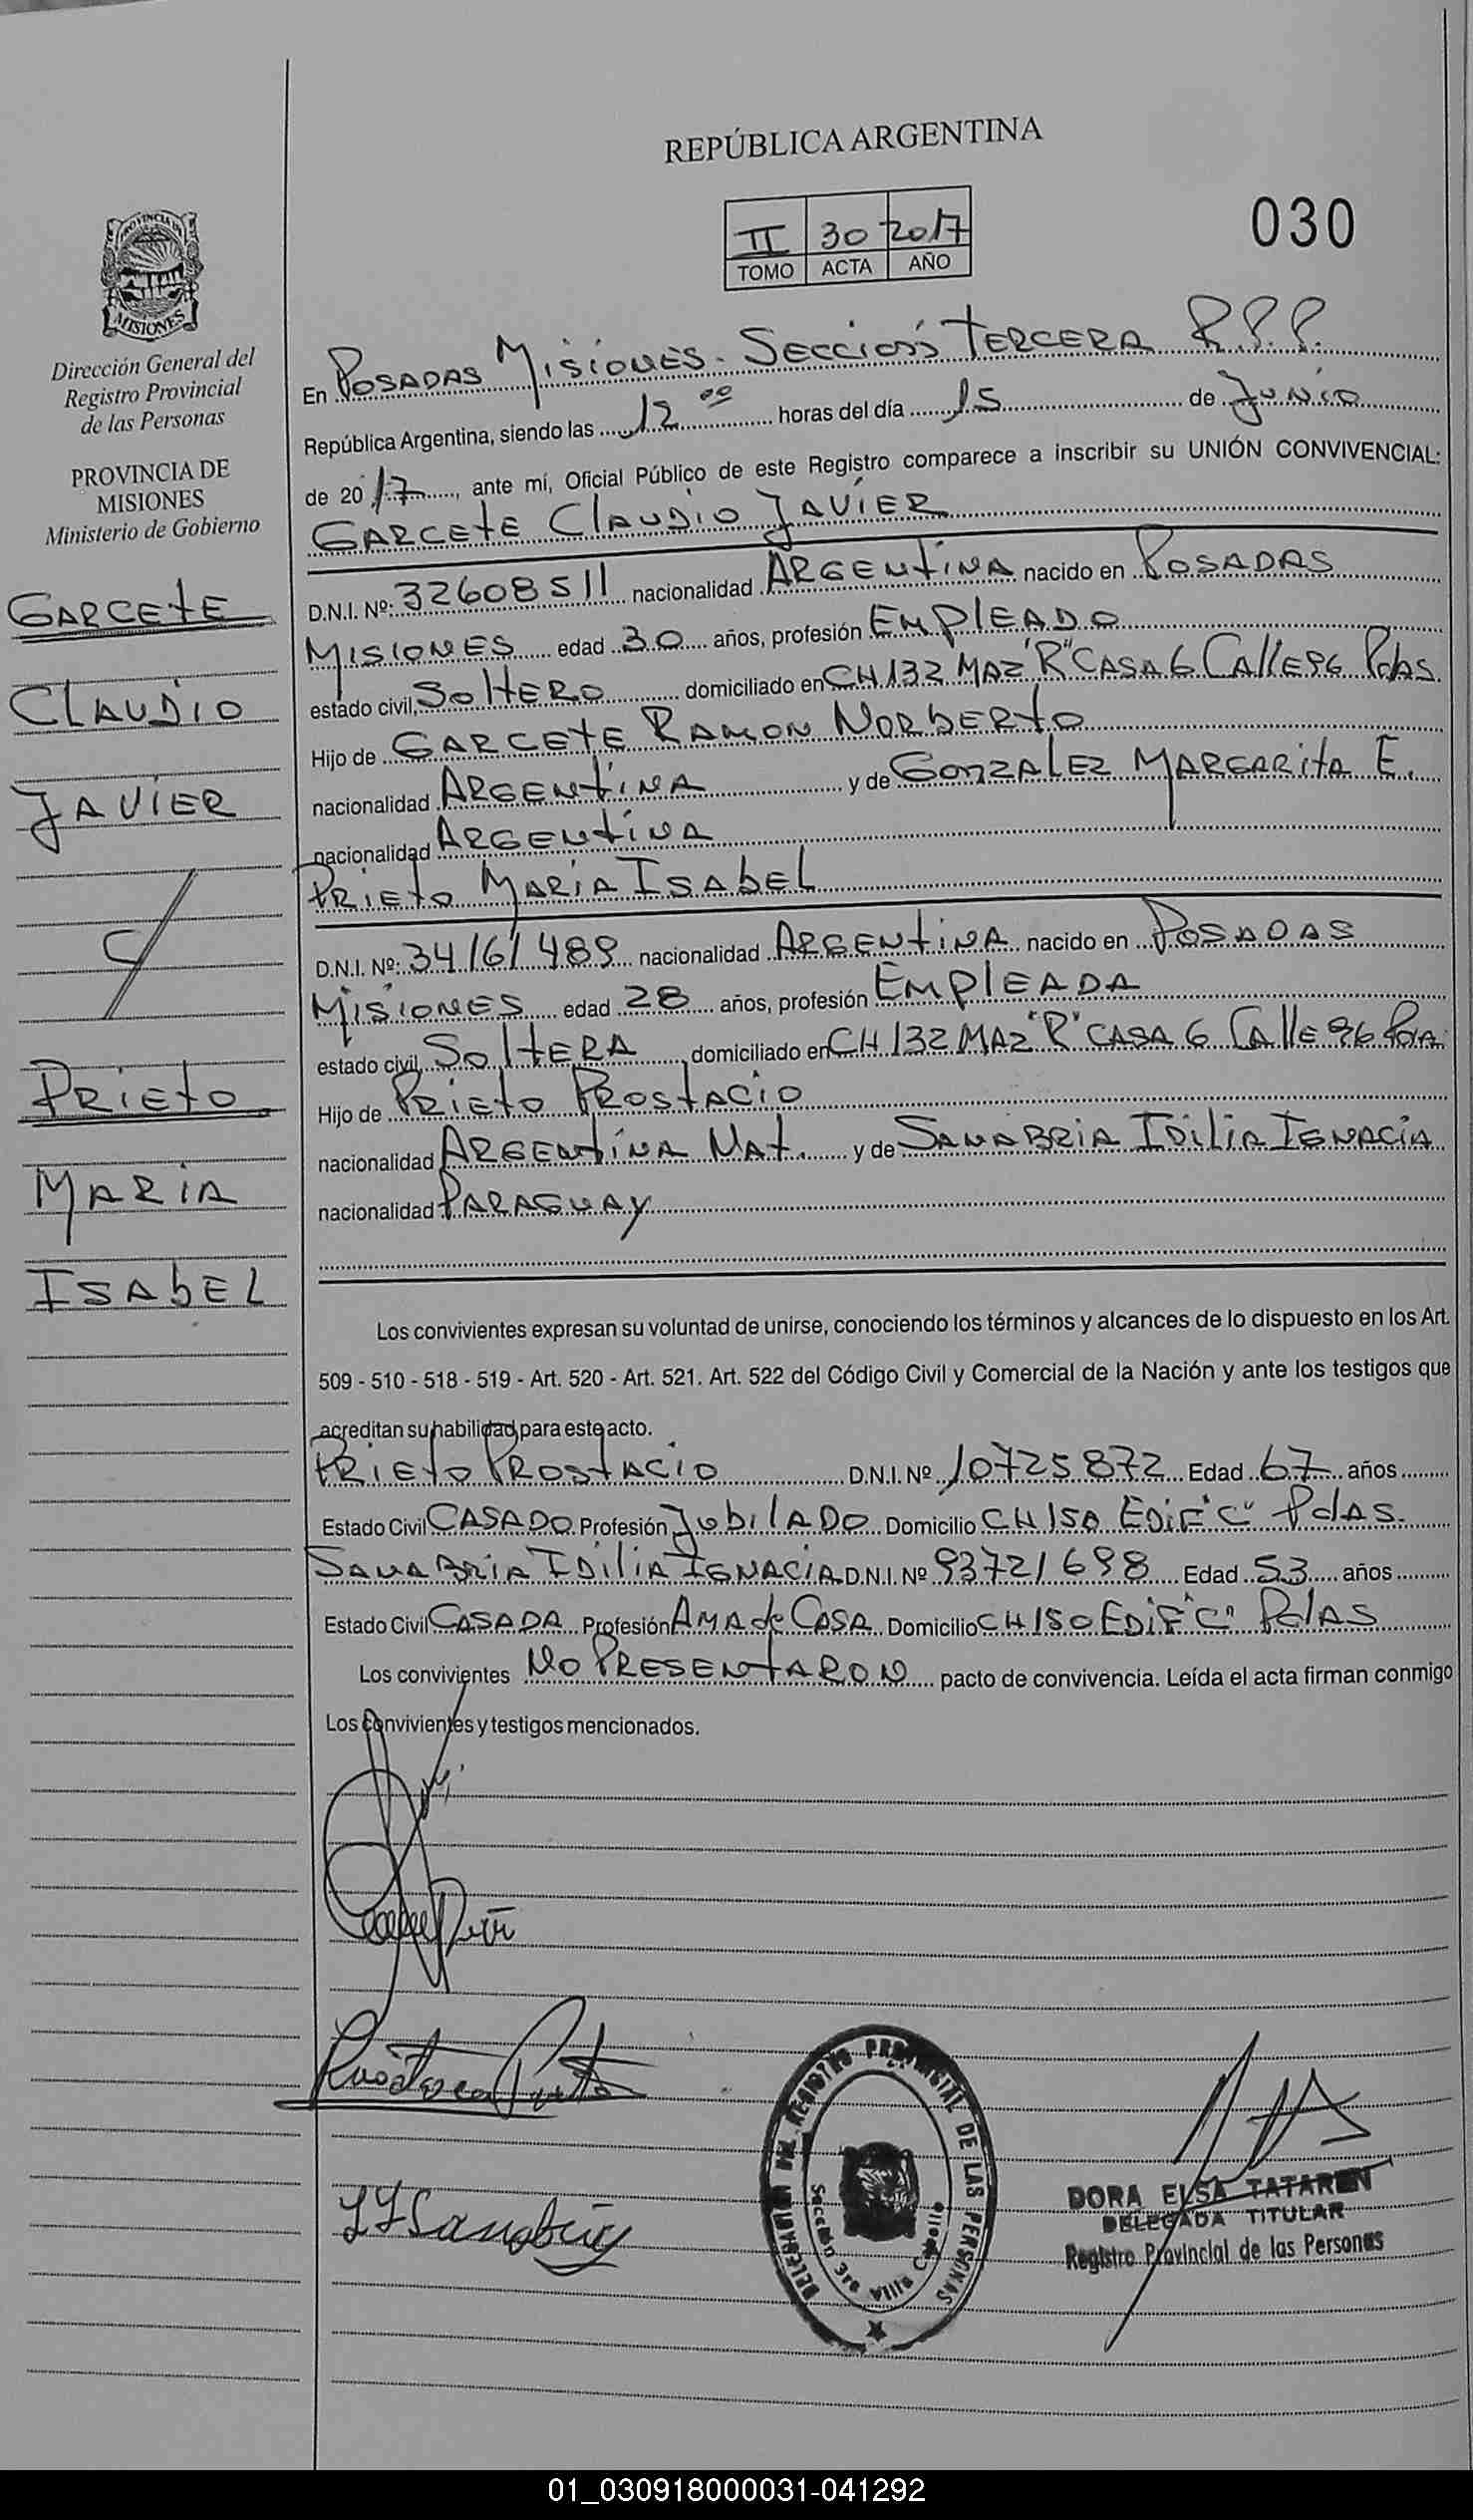 REPÚBLICA ARGENTINA
II 30 2017
TOMO ACTA AÑO
030
PROVINCIA DE
MISIONES
Dirección General del
Registro Provincial
de las Personas
PROVINCIA DE
MISIONES
Ministerio de Gobierno
GARCETE
CLAUDIO
JAVIER
C/
PRIETO
MARIA
ISABEL
En POSADAS MISIONES. SECCION TERCERA R.P.P.
República Argentina, siendo las 12 00 horas del día 15 de JUNIO
de 2017, ante mí, Oficial Público de este Registro comparece a inscribir su UNIÓN CONVIVENCIAL:
GARCETE CLAUDIO JAVIER
D.N.I. Nº: 32608511 nacionalidad ARGENTINA nacido en POSADAS
MISIONES edad 30 años, profesión EMPLEADO
estado civil, SOLTERO domiciliado en CH 132 MAZ "R" CASA 6 CALLE 96 Pdas.
Hijo de GARCETE RAMON NORBERTO
nacionalidad ARGENTINA y de GONZALEZ MARGARITA E.
nacionalidad ARGENTINA
PRIETO MARIA ISABEL
D.N.I. Nº: 34161489 nacionalidad ARGENTINA nacido en POSADAS
MISIONES edad 28 años, profesión EMPLEADA
estado civil, SOLTERA domiciliado en CH 132 MAZ "R" CASA 6 CALLE 96
Hijo de PRIETO PROSTACIO
nacionalidad ARGENTINA NAT. y de SANABRIA IDILIA IGNACIA
nacionalidad PARAGUAY
Los convivientes expresan su voluntad de unirse, conociendo los términos y alcances de lo dispuesto en los Art.
509 - 510 - 518 - 519 - Art. 520 - Art. 521. Art. 522 del Código Civil y Comercial de la Nación y ante los testigos que
acreditan su habilidad para este acto.
PRIETO PROSTACIO D.N.I. Nº 10725872 Edad 67 años
Estado Civil CASADO Profesión JUBILADO Domicilio CH 150 EDIF "C" Pdas.
SANABRIA IDILIA IGNACIA D.N.I. Nº 93721698 Edad 53 años
Estado Civil CASADA Profesión AMA de CASA Domicilio CH 150 EDIF "C" Pdas
Los convivientes NO PRESENTARON pacto de convivencia. Leída el acta firman conmigo
Los convivientes y testigos mencionados.
DELEGACION DEL REGISTRO PROVINCIAL DE LAS PERSONAS
Sección 3ra Villa Cabello
DORA ELSA TATAREN
DELEGADA TITULAR
Registro Provincial de las Personas
01_030918000031-041292